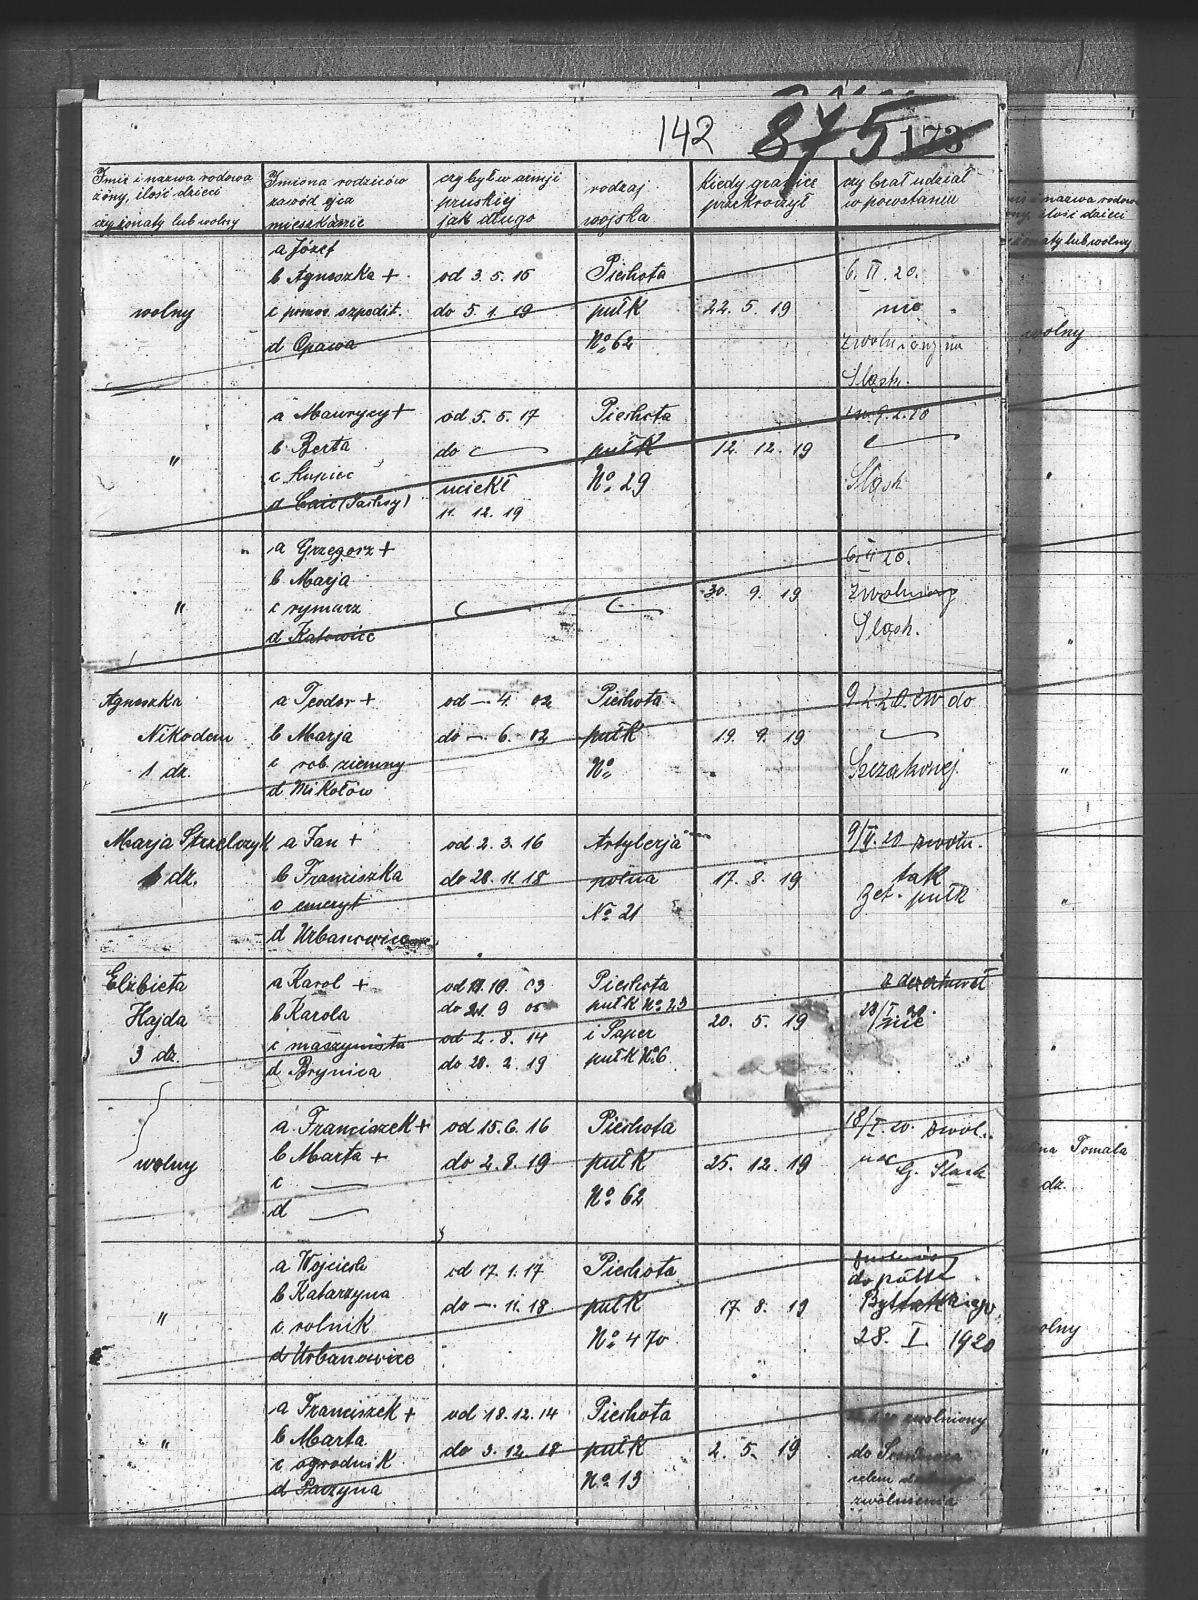 142 875 173
Imię i nazwa rodowa
żony, ilość dzieci
czy żonaty lub wolny
Imiona rodziców
zawód ojca
mieszkanie
czy był w armji
pruskiej
jak długo
rodzaj
wojska
kiedy granicę
przekroczył
czy brał udział
w powstaniu
wolny
a Józef
b Agnieszka +
c pomoc. szpedit.
d Opawa
od 3. 5. 15
do 5. 1. 19
Piechota
pułk
No 62
22. 5. 19
6. II. 20.
nie
zwolniony na
Śląsk.
"
a Maurycy +
b Berta
c Kupiec
d (Sachsy)
od 5. 5. 17
do
uciekł
11. 12. 19
Piechota
pułk
No 29
12. 12. 19
9. 2. 20
Śląsk
"
a Grzegorz +
b Marja
c rymarz
d Katowice
30. 9. 19
6. II 20.
zwolniony
Śląsk.
Agnieszka
Nikodem
1 dz.
a Teodor +
b Marja
c rob. ziemny
d Mikołów
od — 4. 02
do — 6. 02
Piechota
pułk
No
19. 9. 19
do
Szczakowej.
Marja Strzelczyk
1 dz.
a Jan +
b Franciszka
c emeryt
d Urbanowice
od 2. 3. 16
do 28. 11. 18
Artylerja
polna
No 21
17. 8. 19
9/II. 20 zwoln.
tak
Bet. pułk
Elżbieta
Hajda
3 dz.
a Karol +
b Karola
c maszynista
d Brynica
od 11. 10. 03
do 21. 9 05
od 2. 8. 14
do 28. 2. 19
Piechota
pułk No 23
i Paper
pułk No 6
20. 5. 19
zdezerterował
28/I 20.
nie
wolny
a Franciszek +
b Marta +
c —
d —
od 15. 6. 16
do 2. 8. 19
Piechota
pułk
No 62
25. 12. 19
18/I. 20. zwol.
na
G. Śląsk
"
a Wojciech
b Katarzyna
c rolnik
d Urbanowice
od 17. 1. 17
do — 11. 18
Piechota
pułk
No 470
17. 8. 19
do pułku
Bytomskiego
28. I. 1920
"
a Franciszek +
b Marta
c ogrodnik
d Paczyna
od 18. 12. 14
do 3. 12. 18
Piechota
pułk
No 13
2. 5. 19
zwolniony
do Sosnowca
celem
zwolnienia
wolny
"
"
"
"
"
Tomala
dz.
wolny
"